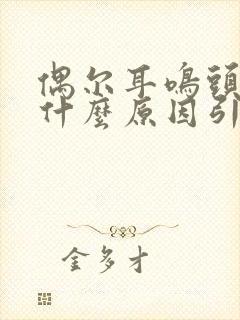 偶尔耳鳴頭
什麼原因引
金多才